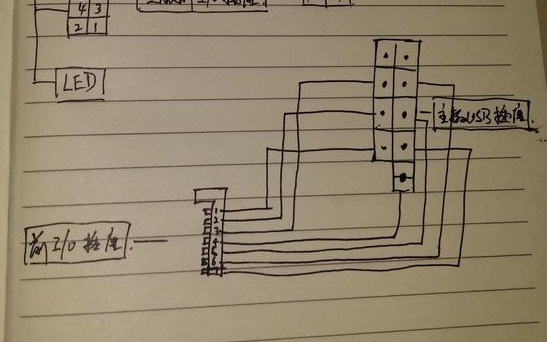 4 3
2 1
LED
主板USB插座.
前I/O插座.
1
2
3
4
5
6